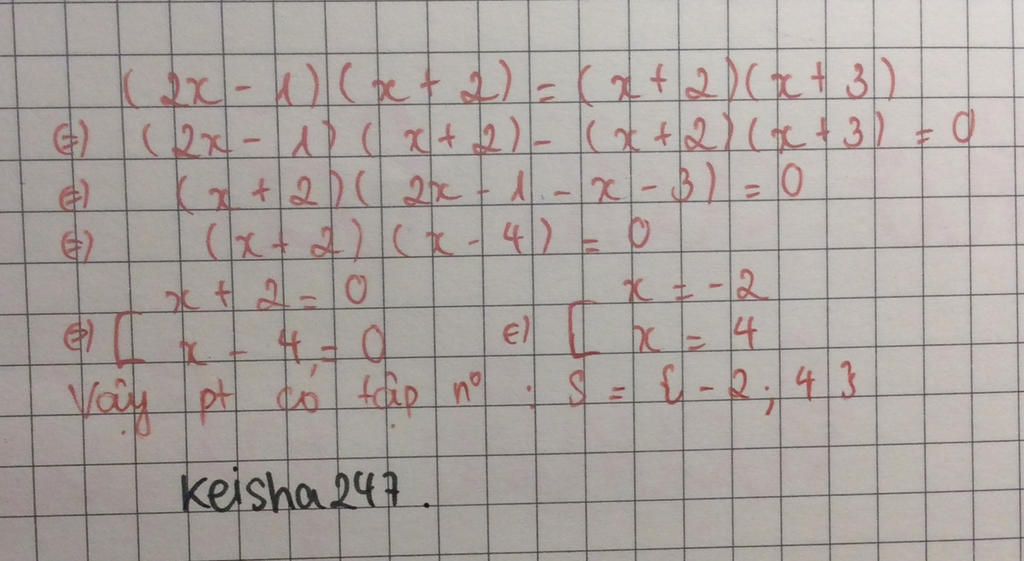 (2x - 1)(x + 2) = (x + 2)(x + 3)
⇔) (2x - 1)(x + 2) - (x + 2)(x + 3) = 0
⇔) (x + 2)(2x - 1 - x - 3) = 0
⇔) (x + 2)(x - 4) = 0
⇔) [ x + 2 = 0 ⇔) [ x = -2
x - 4 = 0 x = 4
Vậy pt có tập nº : S = {-2; 4}
Keisha247.